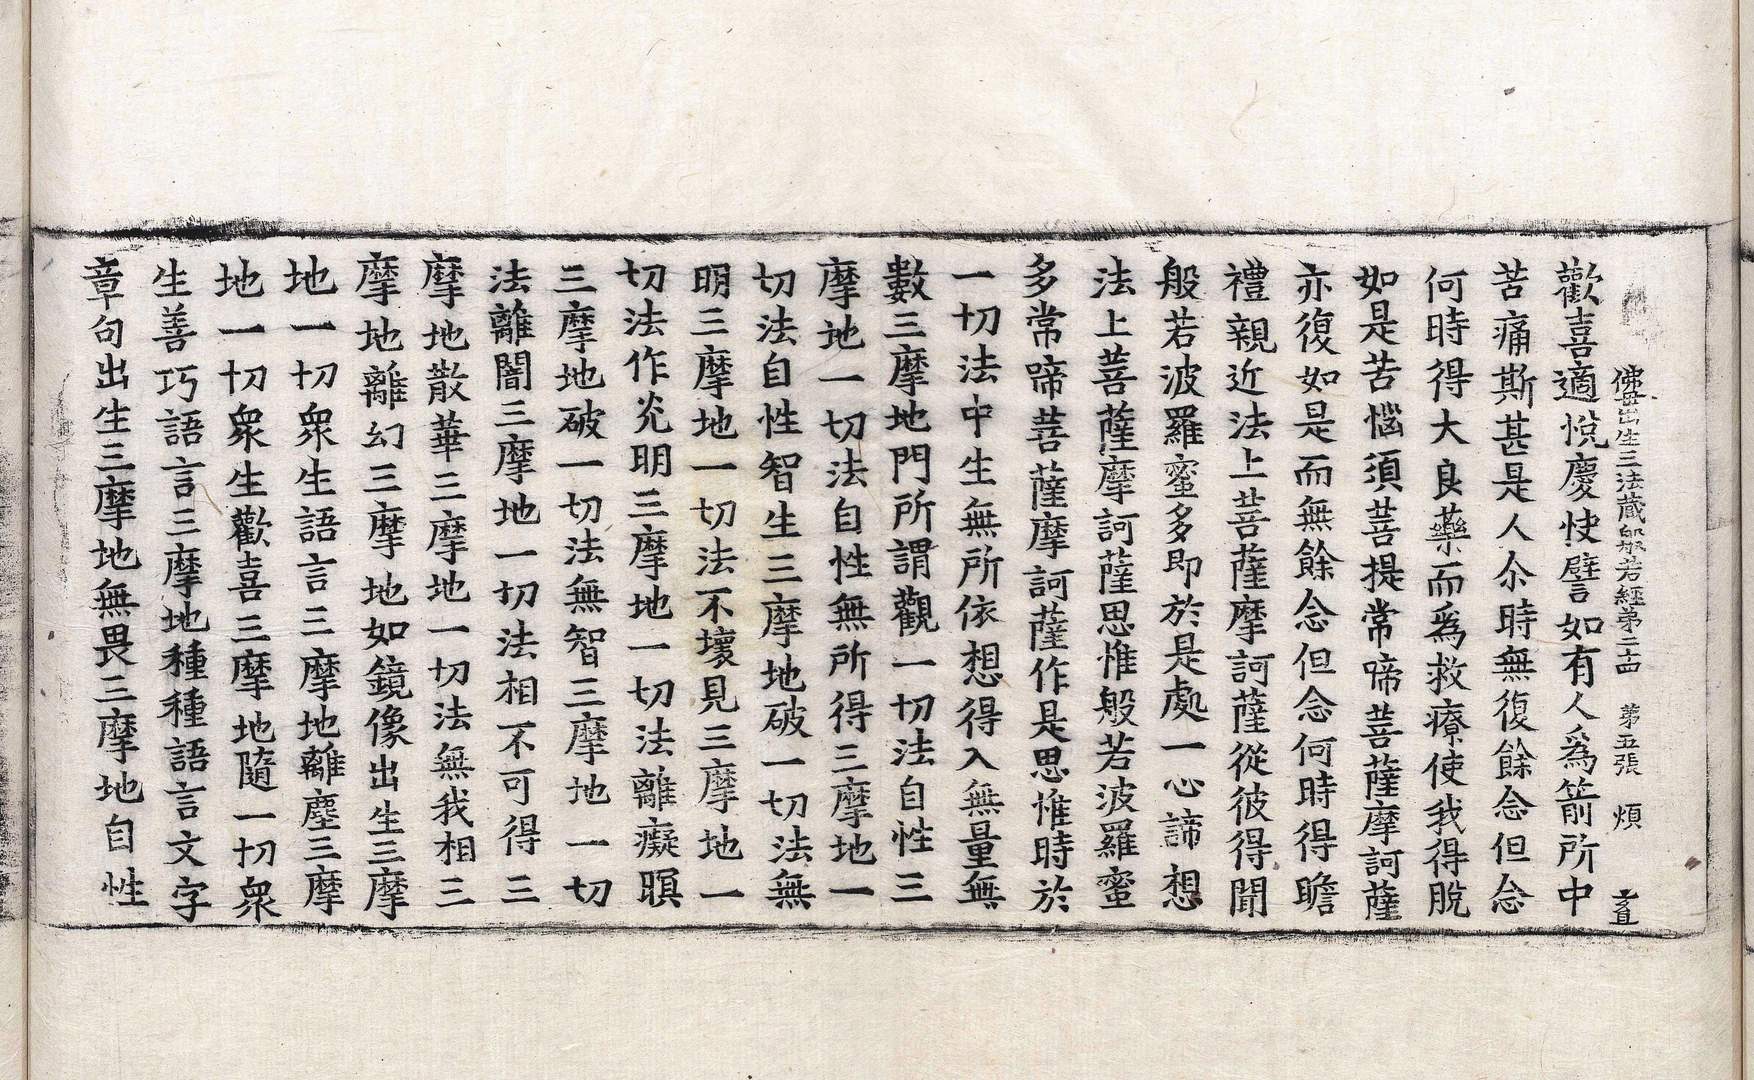 佛母出生三法藏般若經第二十四　第五張　煩　直
歡喜適悅慶快譬如有人爲箭所中
苦痛斯甚是人尒時無復餘念但念
何時得大良藥而爲救療使我得脫
如是苦惱須菩提常啼菩薩摩訶薩
亦復如是而無餘念但念何時得瞻
禮親近法上菩薩摩訶薩從彼得聞
般若波羅蜜多即於是處一心諦想
法上菩薩摩訶薩思惟般若波羅蜜
多常啼菩薩摩訶薩作是思惟時於
一切法中生無所依想得入無量無
數三摩地門所謂觀一切法自性三
摩地一切法自性無所得三摩地一
切法自性智生三摩地破一切法無
明三摩地一切法不壞見三摩地一
切法作光明三摩地一切法離癡暝
三摩地破一切法無智三摩地一切
法離闇三摩地一切法相不可得三
摩地散華三摩地一切法無我相三
摩地離幻三摩地如鏡像出生三摩
地一切衆生語言三摩地離塵三摩
地一切衆生歡喜三摩地隨一切衆
生善巧語言三摩地種種語言文字
章句出生三摩地無畏三摩地自性